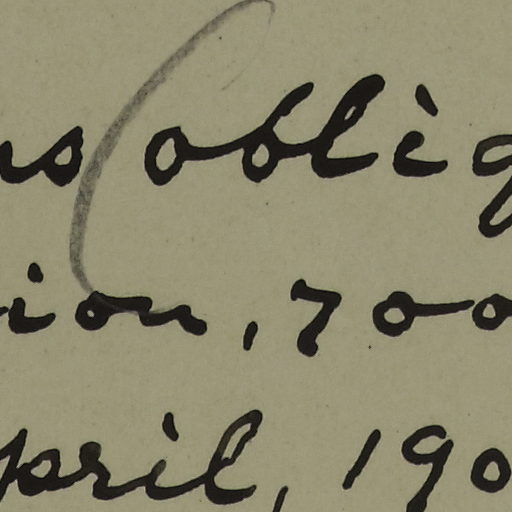 ns oblig
ion, 700
pril, 190